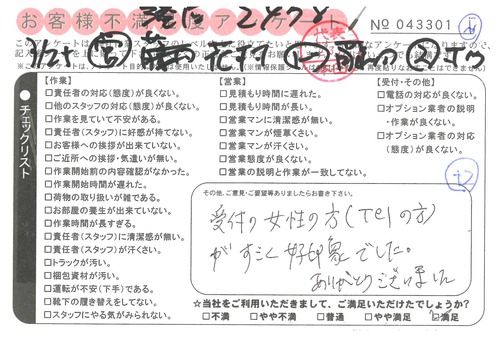 お客様不満足度アンケート
№ 043301
代表
チェックリスト
【作業】
□責任者の対応(態度)が良くない。
□他のスタッフの対応(態度)が良くない。
□作業を見ていて不安がある。
□責任者(スタッフ)に好感が持てない。
□お客様への挨拶が出来ていない。
□ご近所への挨拶・気遣いが無い。
□作業開始前の内容確認がなかった。
□作業開始時間が遅れた。
□荷物の取り扱いが雑である。
□お部屋の養生が出来ていない。
□作業時間が長すぎる。
□責任者(スタッフ)に清潔感が無い。
□責任者(スタッフ)が汗くさい。
□トラックが汚い。
□梱包資材が汚い。
□運転が不安(下手)である。
□靴下の履き替えをしてない。
□スタッフにやる気がみられない。
【営業】
□見積もり時間に遅れた。
□見積もり時間が長い。
□営業マンに清潔感が無い。
□営業マンが煙草くさい。
□営業マンが汗くさい。
□営業態度が良くない。
□営業の説明と作業が一致してない。
【受付・その他】
□電話の対応が良くない。
□オプション業者の説明
・作業が良くない。
□オプション業者の対応
(態度)が良くない。
その他、ご意見・ご要望等ありましたらお書き下さい。
受付の女性の方(Telの方)
がすごく好印象でした。
ありがとうございました
☆当社をご利用いただきまして、ご満足いただけたでしょうか?
□不満 □やや不満 □普通 □やや満足 □満足